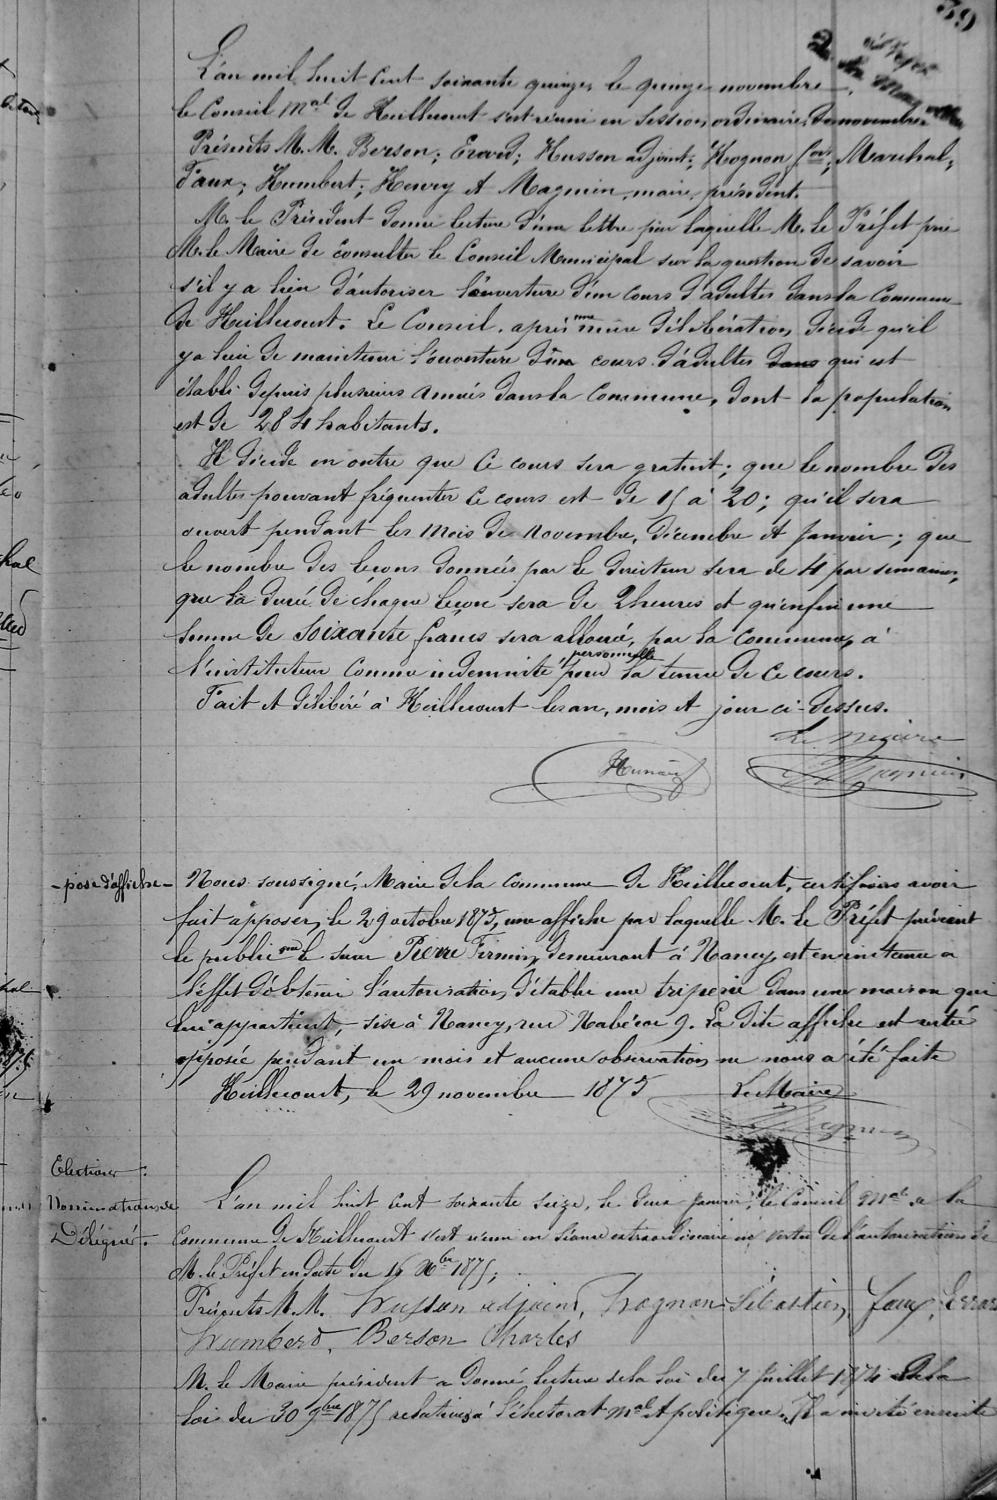 39
L'an mil huit cent soixante quinze, le quinze novembre,
le Conseil Mal de Heillecourt s'est réuni en session ordinaire, de novembre
Présents M.M. Berson; Erard; Husson adjoint; Hognon Sen; Marchal;
Faux; Humbert; Henry et Magnin, maire, président.
M. le Président donne lecture d'une lettre par laquelle M. le Préfet prie
M. le Maire de consulter le Conseil Municipal sur la question de savoir
s'il y a lieu d'autoriser l'ouverture d'un cours d'adultes dans la Commune
de Heillecourt. Le Conseil, après mûre délibération, décide qu'il
y a lieu de maintenir l'ouverture d'un cours d'adultes dans qui est
établi depuis plusieurs années dans la Commune, dont la population
est de 284 habitants.
Il décide en outre que ce cours sera gratuit; que le nombre des
adultes pouvant fréquenter ce cours est de 15 à 20; qu'il sera
ouvert pendant les mois de novembre, décembre et Janvier; que
le nombre des leçons données par le directeur sera de 4 par semaine,
que la durée de chaque leçon sera de 2 heures et qu'enfin une
somme de soixante francs sera allouée, par la commune, à
l'instituteur comme indemnité personnelle pour la tenue de ce cours.
Fait et délibéré à Heillecourt les an, mois et jour ci-dessus.
Le Maire
Magnin
- pose d'affiche -
Nous soussigné, Maire de la commune de Heillecourt, certifions avoir
fait apposer, le 29 octobre 1875, une affiche par laquelle M. le Préfet prévient
le public que le sieur Pierre Firmin, demeurant à Nancy, est en instance a
l'effet d'obtenir l'autorisation d'établir une triperie dans une maison qui
lui appartient, sise à Nancy, rue Nabécor 9. La dite affiche est restée
apposée pendant un mois et aucune observation ne nous a été faite
Heillecourt, le 29 novembre 1875 Le Maire
Magnin
Elections:
Nomination de
Délégués.
L'an mil huit cent soixante seize, le deux janvier, le Conseil Mal de la
Commune de Heillecourt s'est réuni en séance extraordinaire en vertu de l'autorisation de
M. le Préfet en date du 16 Xbre 1875;
Présents M.M. Husson adjoint, Hognon Sébastien, Faux, Errard
Humbert, Berson Charles
M. le Maire président a donné lecture de la loi du 7 Juillet 1874 et de la
loi du 30 9bre 1875 relatives à l'électorat mal et politique. Il a invité ensuite